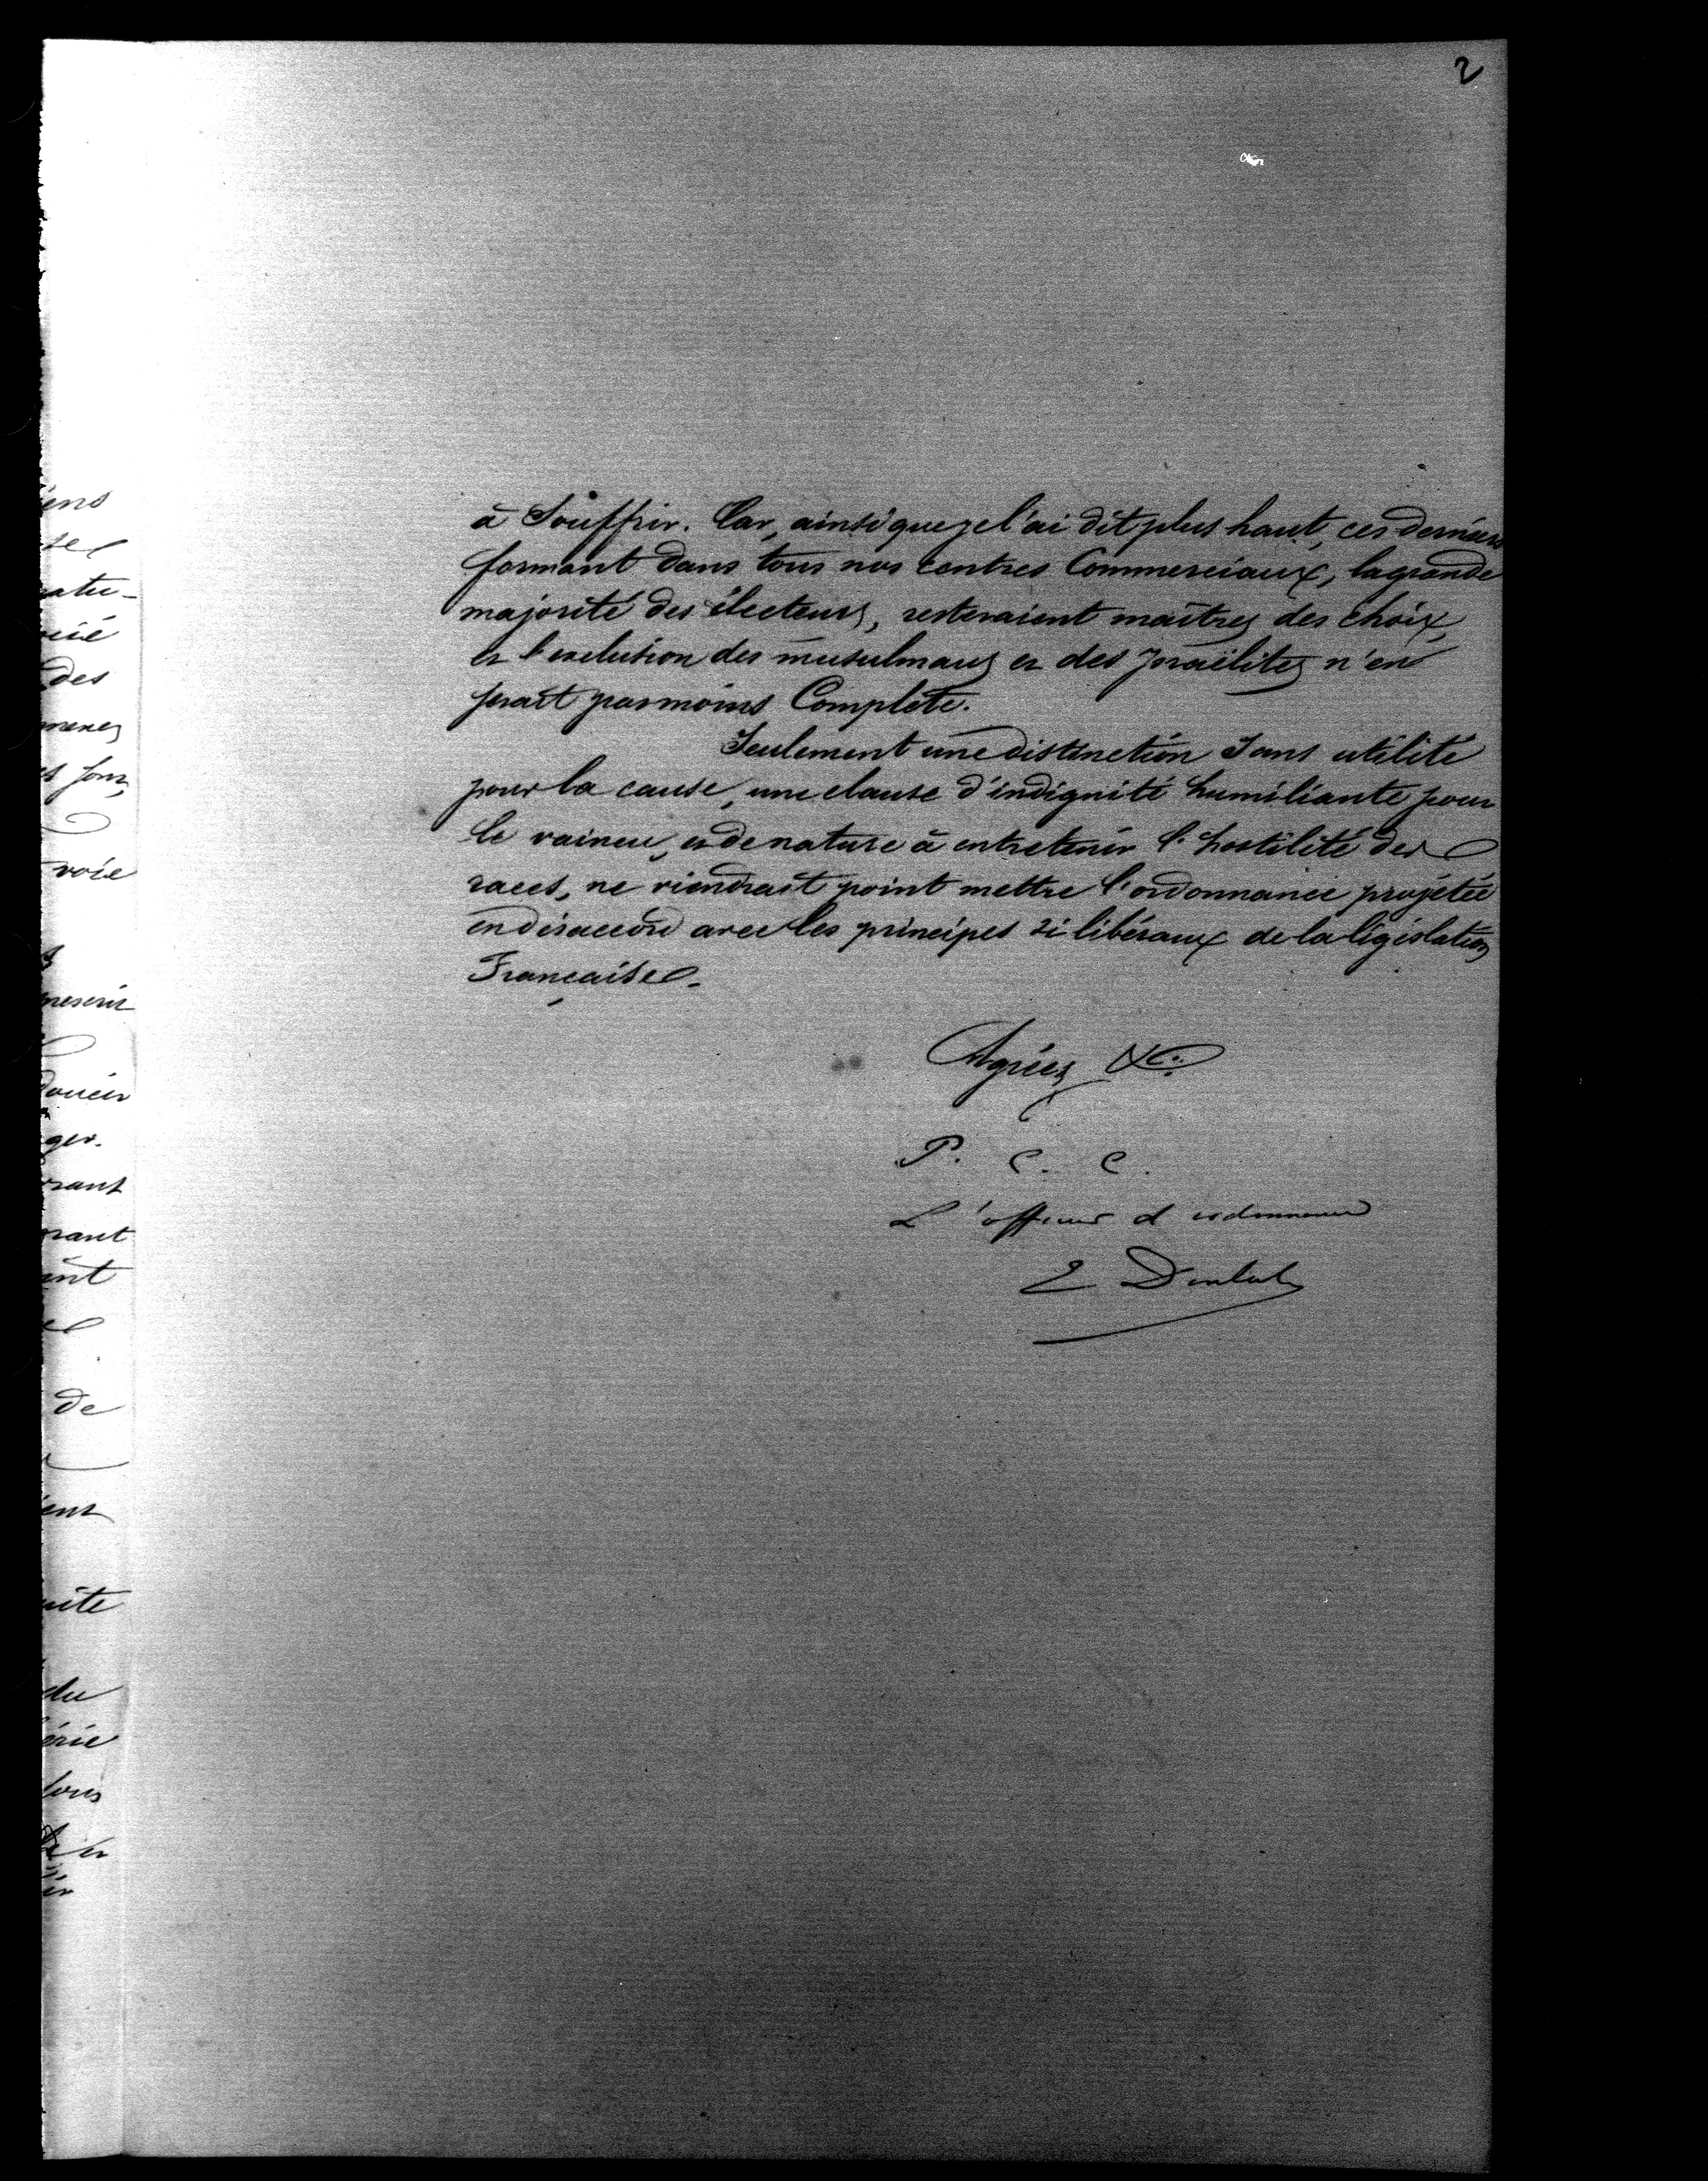 2
à Souffrir. Car, ainsi que je l'ai dit plus haut, ces derniers
formant dans tous nos centres Commerciaux, la grande
majorité des électeurs, resteraient maîtres des choix,
et l'exclusion des musulmans et des Israëlites n'en
serait pas moins Complète.
Seulement une distinction Sans utilité
pour la cause, une clause d'indignité humiliante pour
le vaincu, et de nature à entretenir l'hostilité des
races, ne viendrait point mettre l'ordonnance projetée
en désaccord avec les principes si libéraux de la législation
Française.
Agréez &c.
P. C. C.
L'officier d'ordonnance
E
ens
natu-
des
voie
rant
de
ent
du
érie